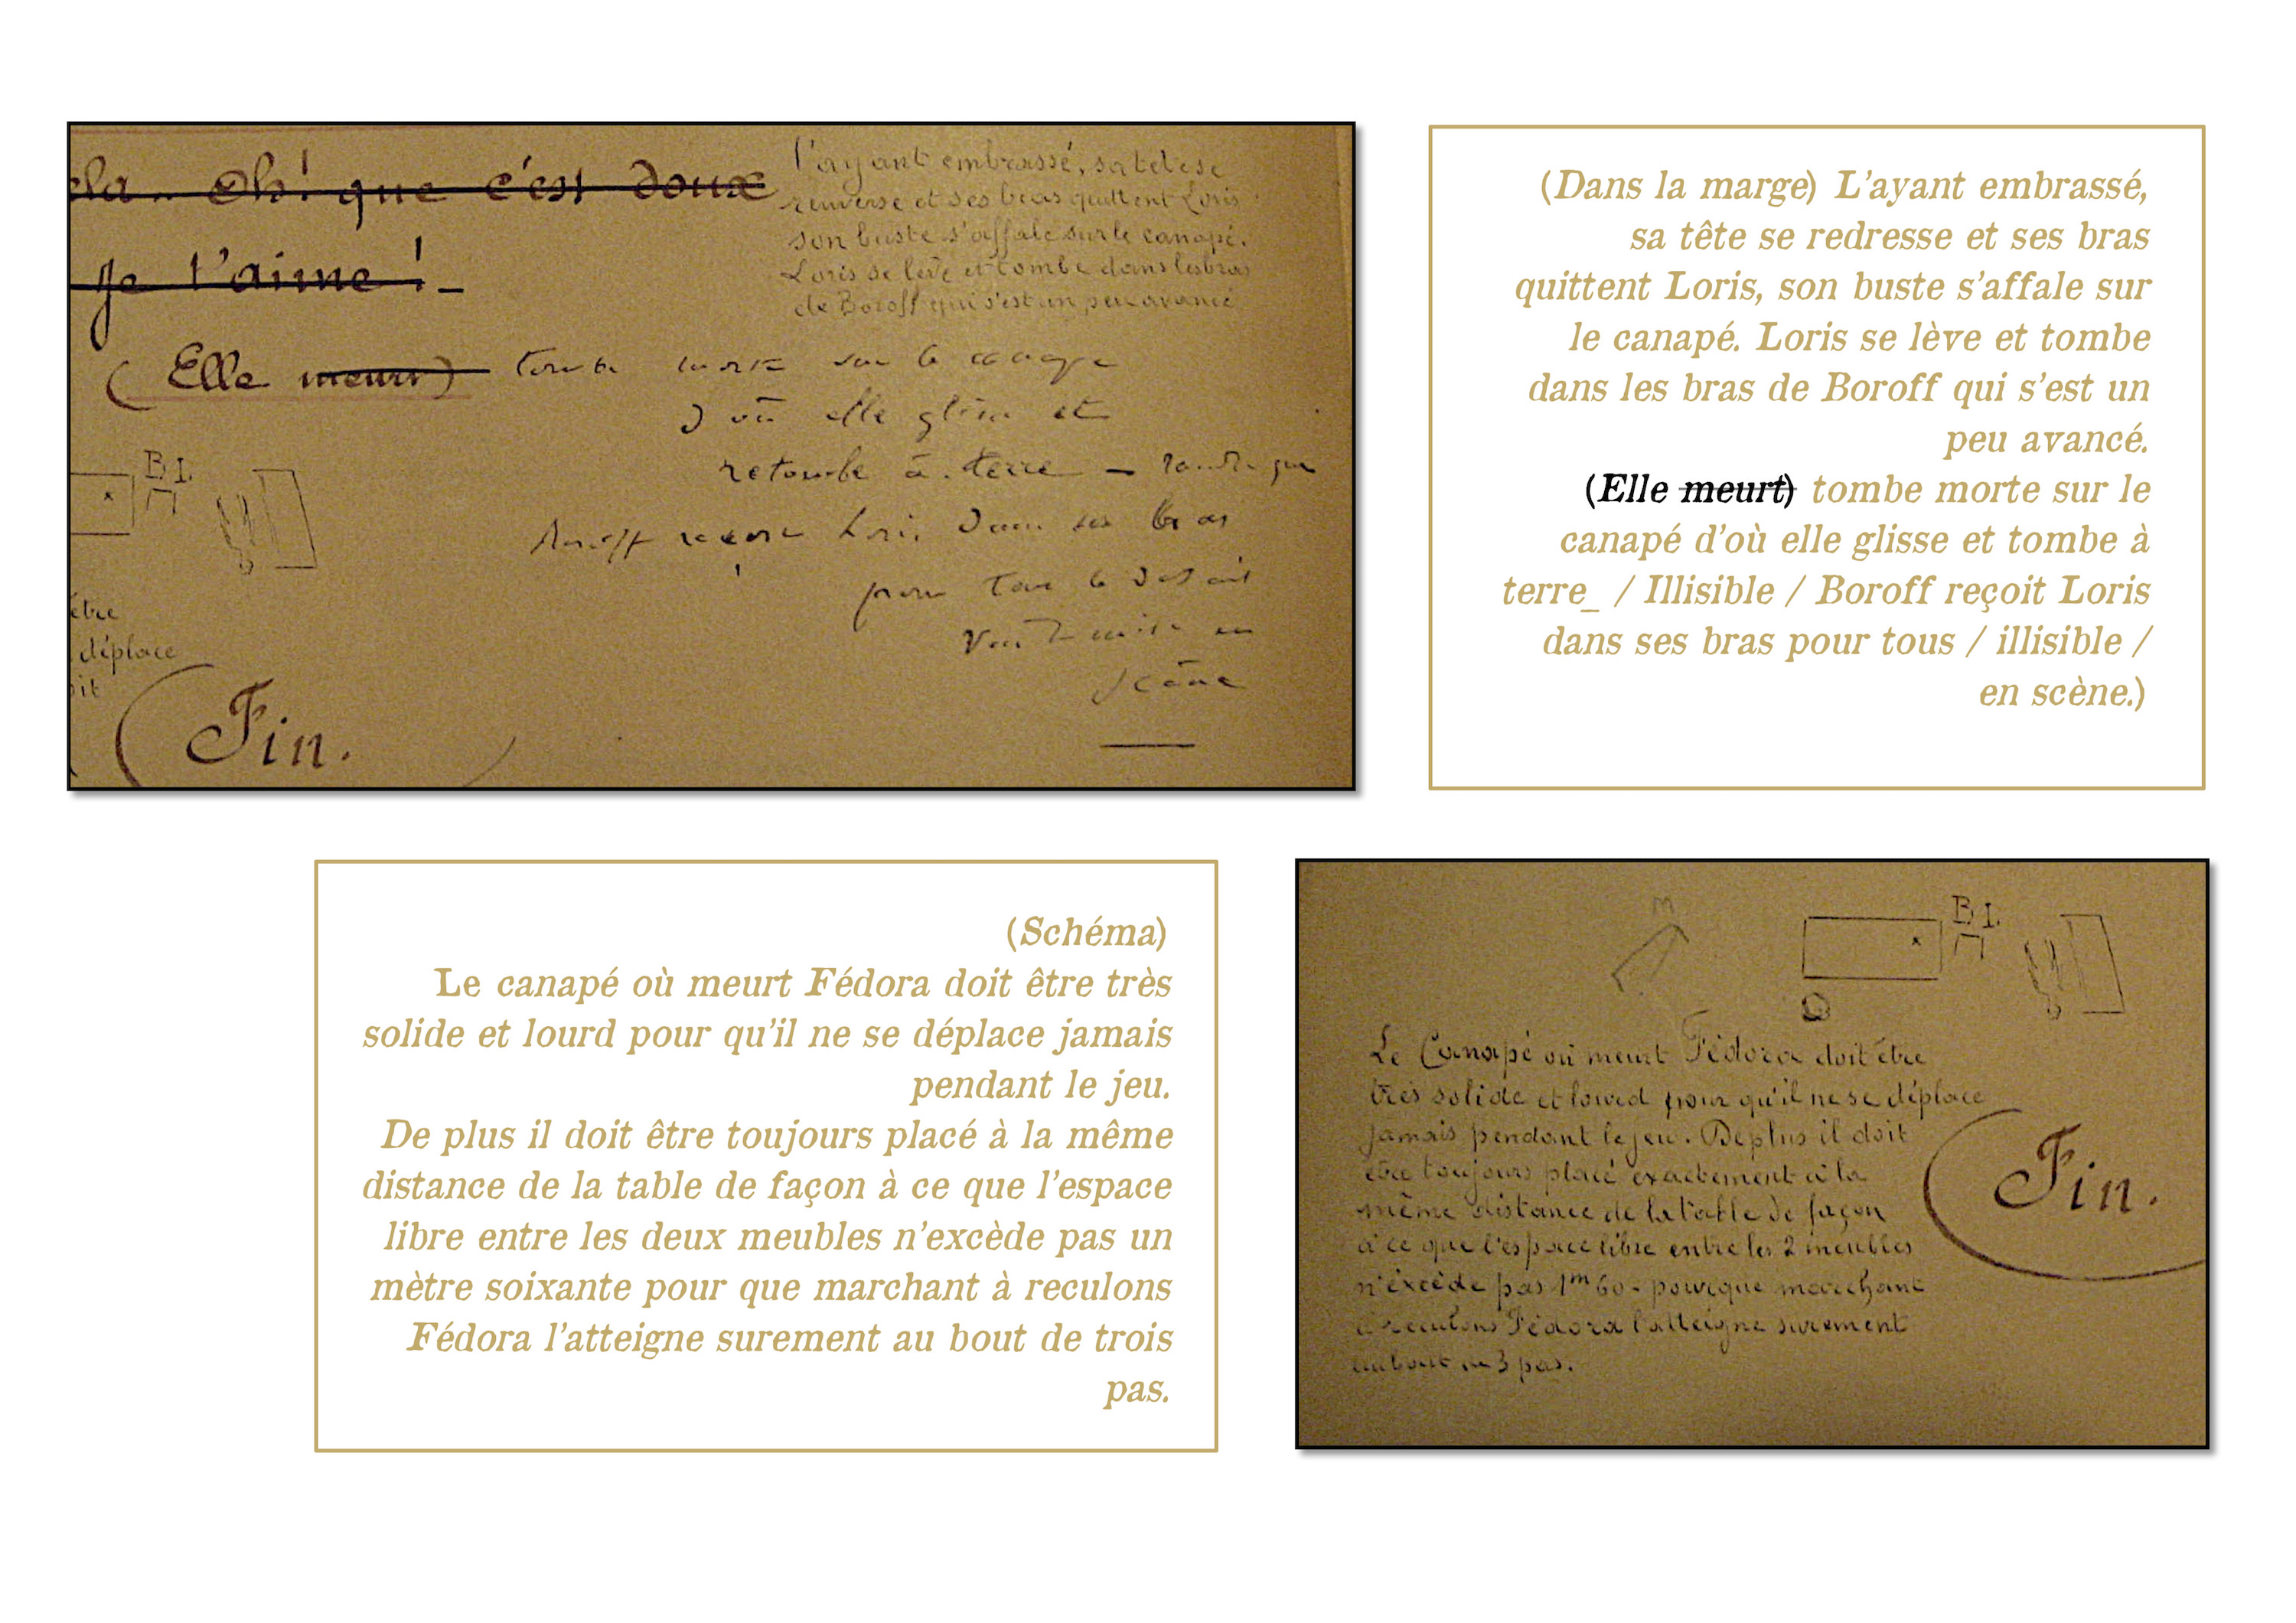 ela.. Oh! que c'est doux
je t'aime! _
l'ayant embrassé, sa tete se
renverse et ses bras quittent Loris
son buste s'affale sur le canapé.
Loris se lève et tombe dans les bras
de Boroff qui s'est un peu avancé
(Elle meurt) tombe morte sur le canapé
d'où elle glisse et
retombe à terre _
Boroff reçoit Loris dans ses bras
pour tout le
mise en
scène
B I.
être
déplace
oit
Fin.
(Dans la marge) L'ayant embrassé,
sa tête se redresse et ses bras
quittent Loris, son buste s'affale sur
le canapé. Loris se lève et tombe
dans les bras de Boroff qui s'est un
peu avancé.
(Elle meurt) tombe morte sur le
canapé d'où elle glisse et tombe à
terre_ / Illisible / Boroff reçoit Loris
dans ses bras pour tous / illisible /
en scène.)
(Schéma)
Le canapé où meurt Fédora doit être très
solide et lourd pour qu'il ne se déplace jamais
pendant le jeu.
De plus il doit être toujours placé à la même
distance de la table de façon à ce que l'espace
libre entre les deux meubles n'excède pas un
mètre soixante pour que marchant à reculons
Fédora l'atteigne surement au bout de trois
pas.
B I.
Le Canapé où meurt Fédora doit être
très solide et lourd pour qu'il ne se déplace
jamais pendant le jeu. De plus il doit
être toujours placé exactement à la
même distance de la table de façon
à ce que l'espace libre entre les 2 meubles
n'excède pas 1m 60 - pour que marchant
à reculons Fédora l'atteigne surement
au bout de 3 pas.
Fin.